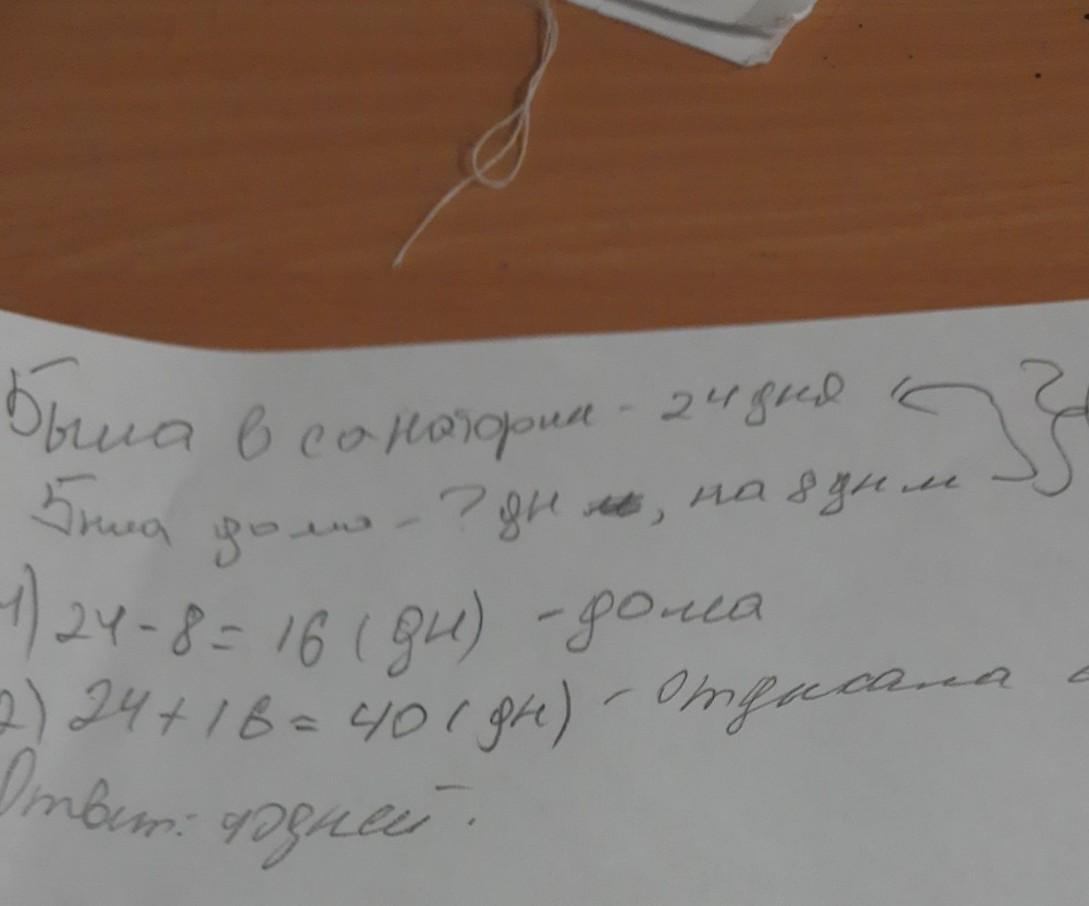 Была в санатории - 24 дня ?
Была дома - ? дн, на 8 дн м
1) 24 - 8 = 16 (дн) - дома
2) 24 + 16 = 40 (дн) - отдыхала
Ответ: 40 дней.